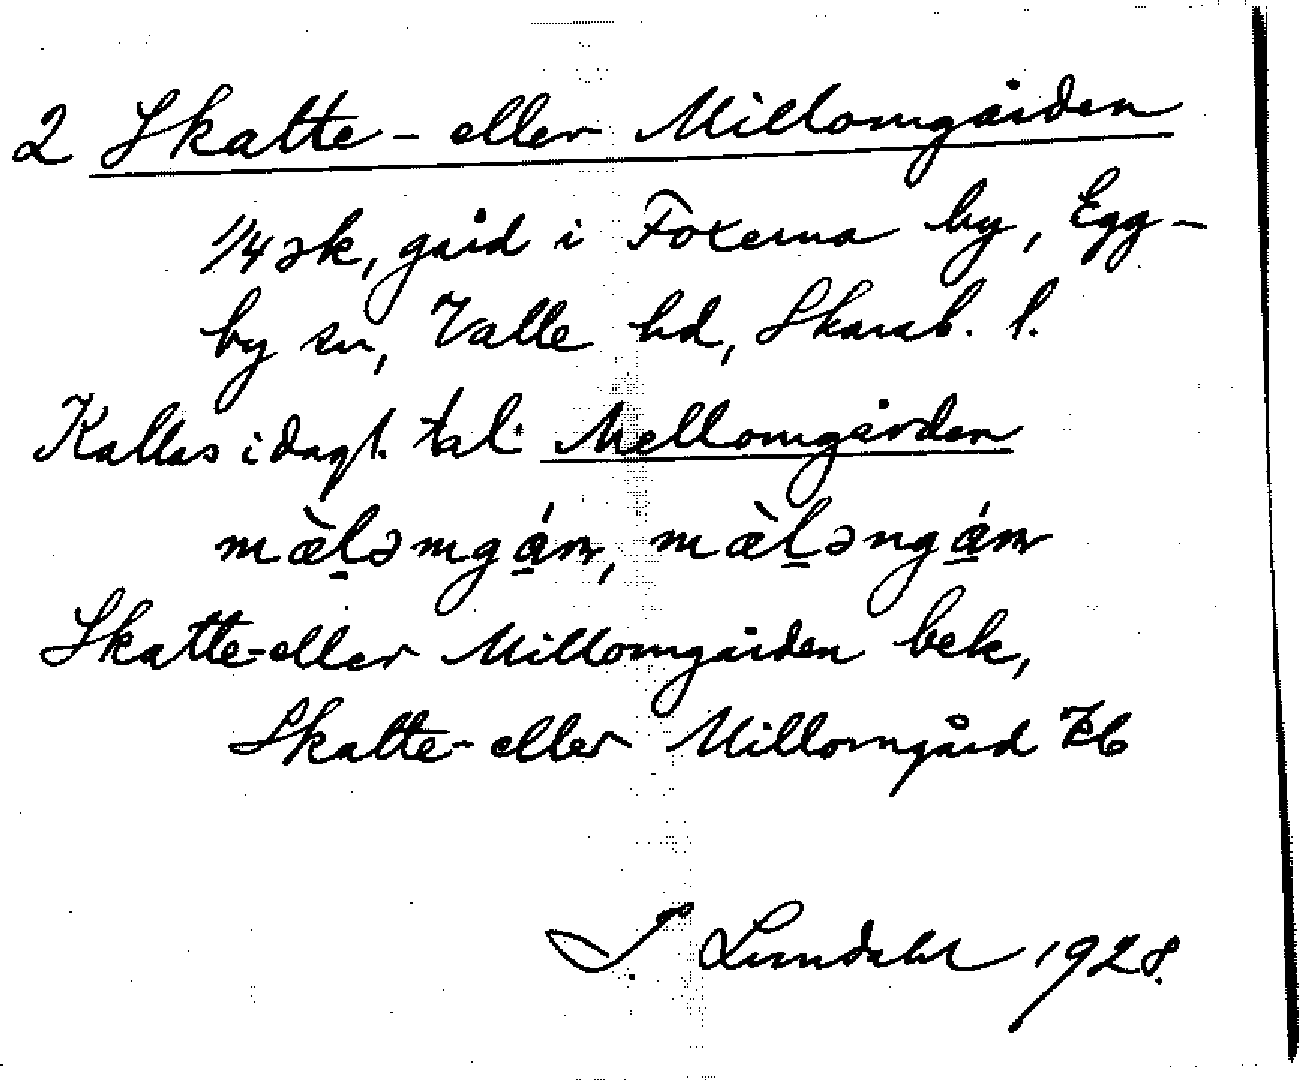 2 Skatte- eller Millomgården
1/4 sk, gård i Foxerna by, Egg-
by sn, Valle hd, Skarab. l.
Kallas i dagl. tal: Mellomgården
mæ̀l̠əmgá̠ɷ, mæ̀l̠əngá̠ɷ
Skatte-eller Millomgården bek,
Skatte-eller Millomgård Jb
S. Lundahl 1928.